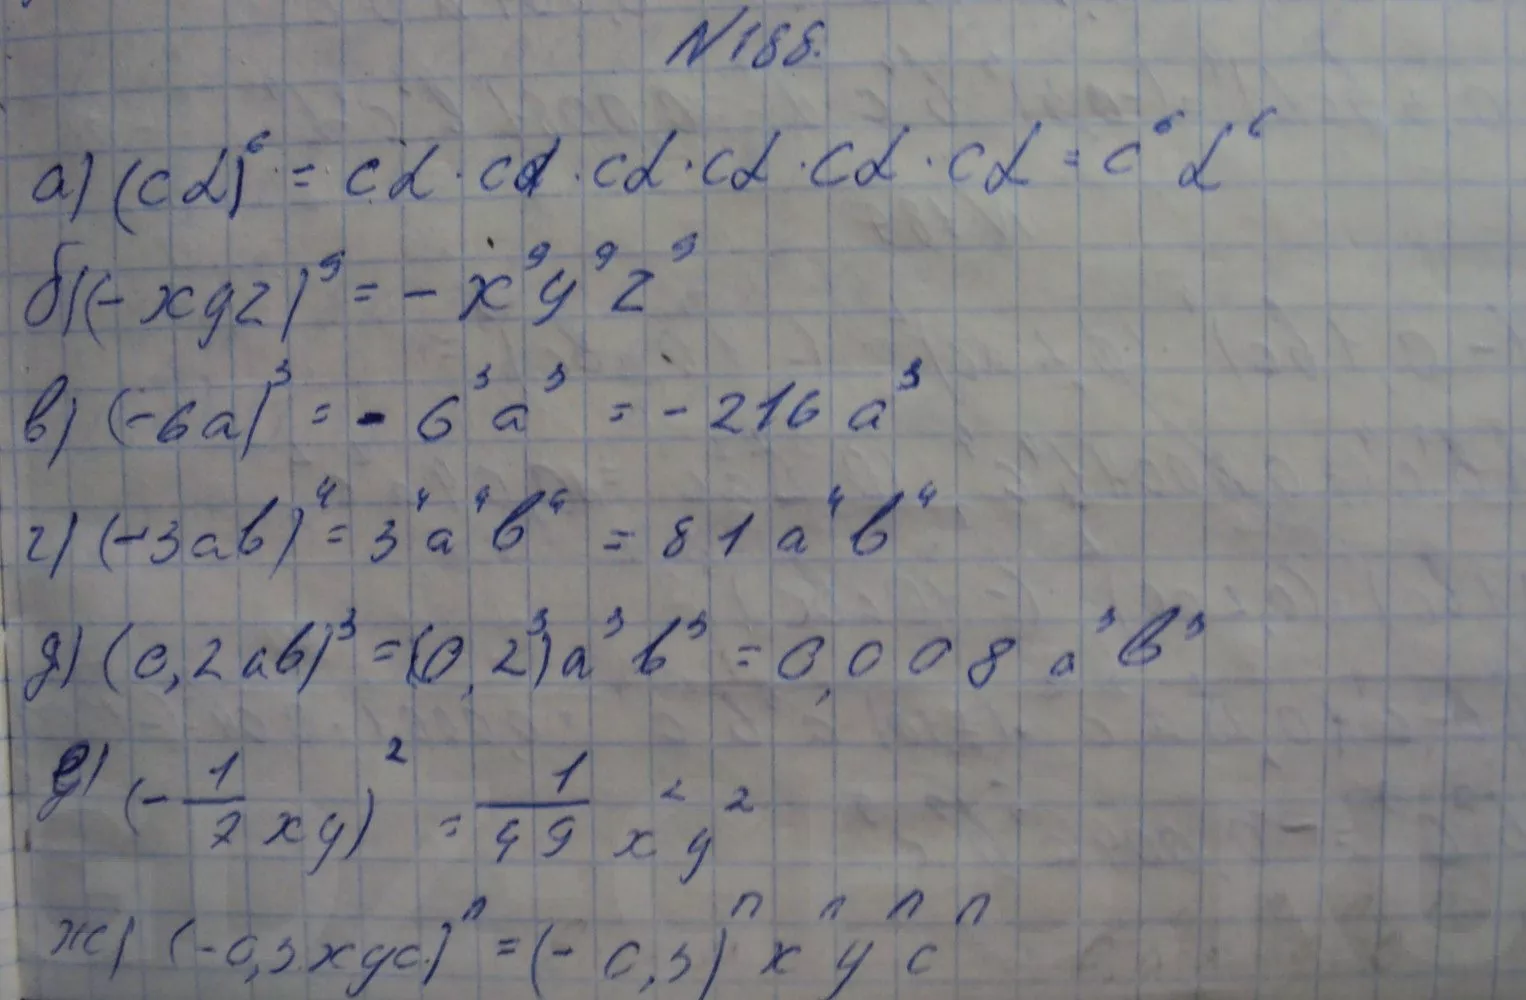 N188.
а) (cd)⁶ = cd · cd · cd · cd · cd · cd = c⁶d⁶
б) (-xyz)⁹ = - x⁹y⁹z⁹
в) (-6a)³ = - 6³a³ = - 216 a³
г) (-3ab)⁴ = 3⁴a⁴b⁴ = 81 a⁴b⁴
д) (0,2ab)³ = (0,2³)a³b³ = 0,008 a³b³
е) (-1/7 xy)² = 1/49 x²y²
ж) (-0,3xyc)ⁿ = (-0,3)ⁿxⁿyⁿcⁿ